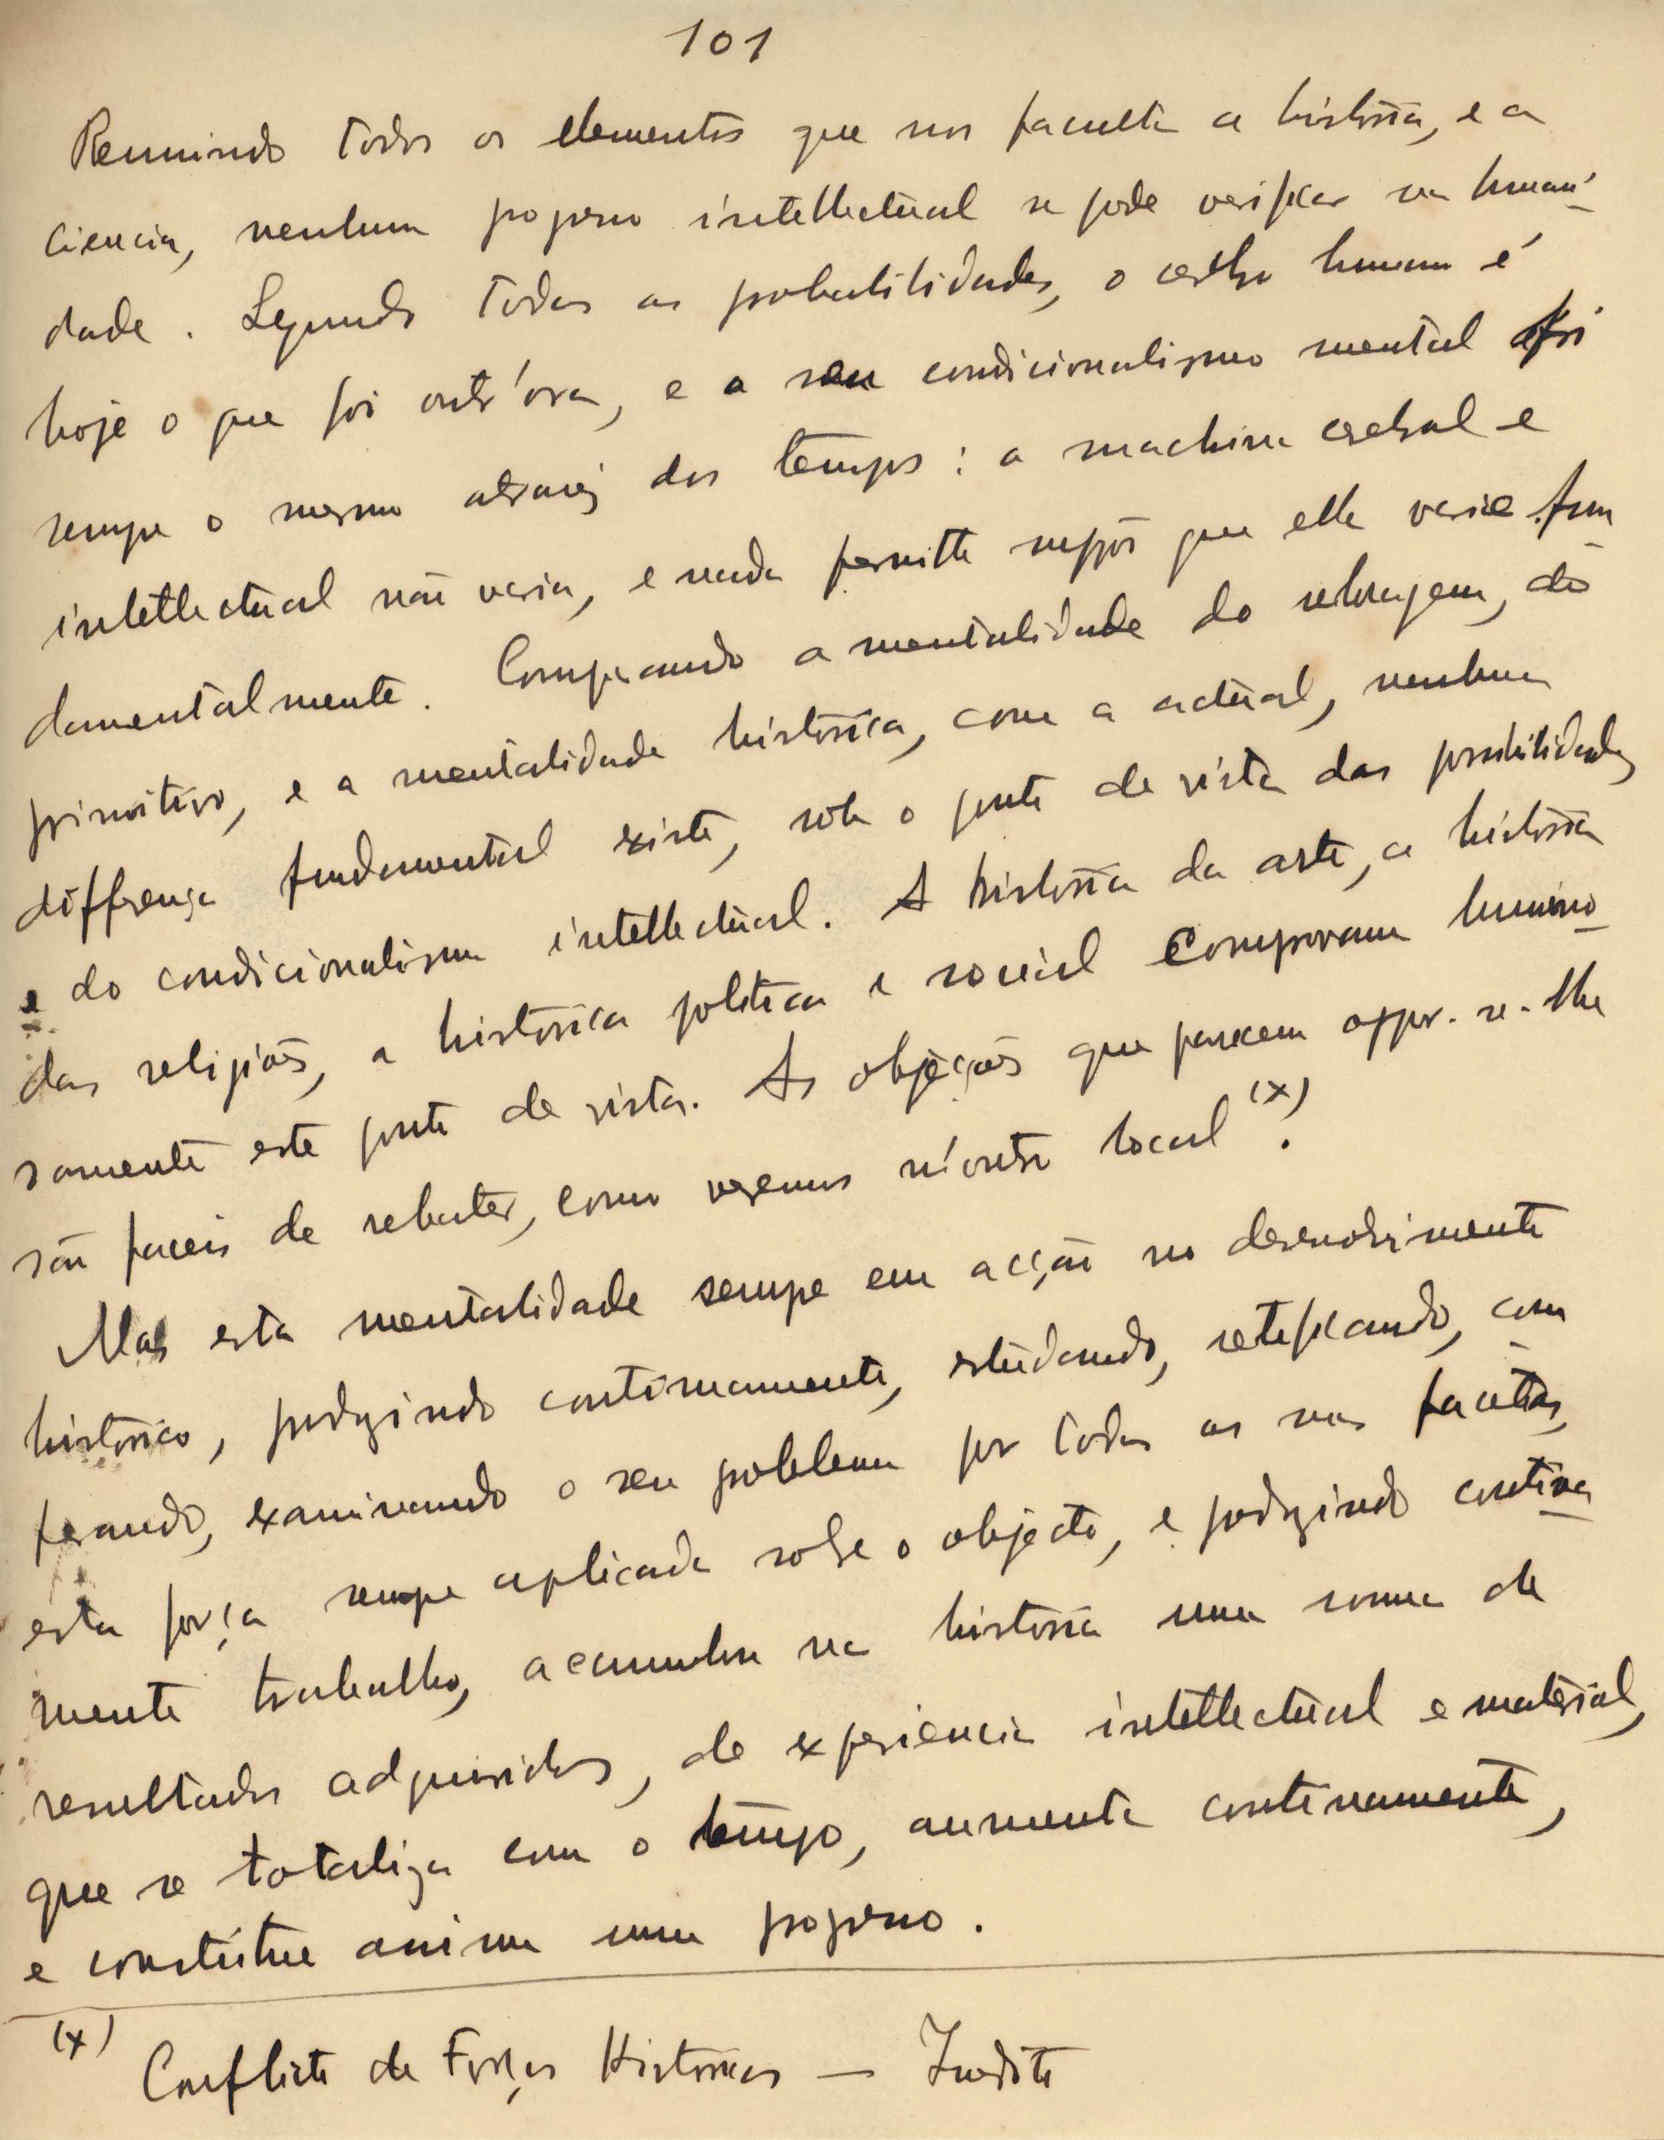 101
Reunindo todos os elementos que nos faculta a historia, e a
ciencia, nenhum progresso intellectual se pode verificar na humani-
dade. Segundo todas as probabilidades, o cerebro humano é
hoje o que foi outr'ora, e o seu condicionalismo mental foi
sempre o mesmo atravéz dos tempos: a machina cerebral e
intellectual não varia, e nada permitte suppôr que ella varie fun
damentalmente. Comparando a mentalidade do selvagem, do
primitivo, e a mentalidade historica, com a actual, nenhuma
differença fundamental existe, sob o ponto de vista das possibilidades
e do condicionalismo intellectual. A historia da arte, a historia
das religiões, a historica politica e social comprovam lumino-
samente este ponto de vista. As objeções que parecem oppor-se-lhe
são faceis de rebater, como veremos n'outro local (x).
Mas esta mentalidade sempre em acção no desenvolvimento
historico, produzindo continuamente, estudando, retificando, com-
perando, examinando o seu problema por todas as suas facetas,
esta força sempre aplicada sobre o objecto, e produzindo continua-
mente trabalho, accumulou na historia uma somma de
resultados adqueridos, de experiencia intellectual e material,
que se totaliza com o tempo, aumenta continuamente,
e constitue assim um progresso.
(x) Conflicto de Forças Historicas — Inedito